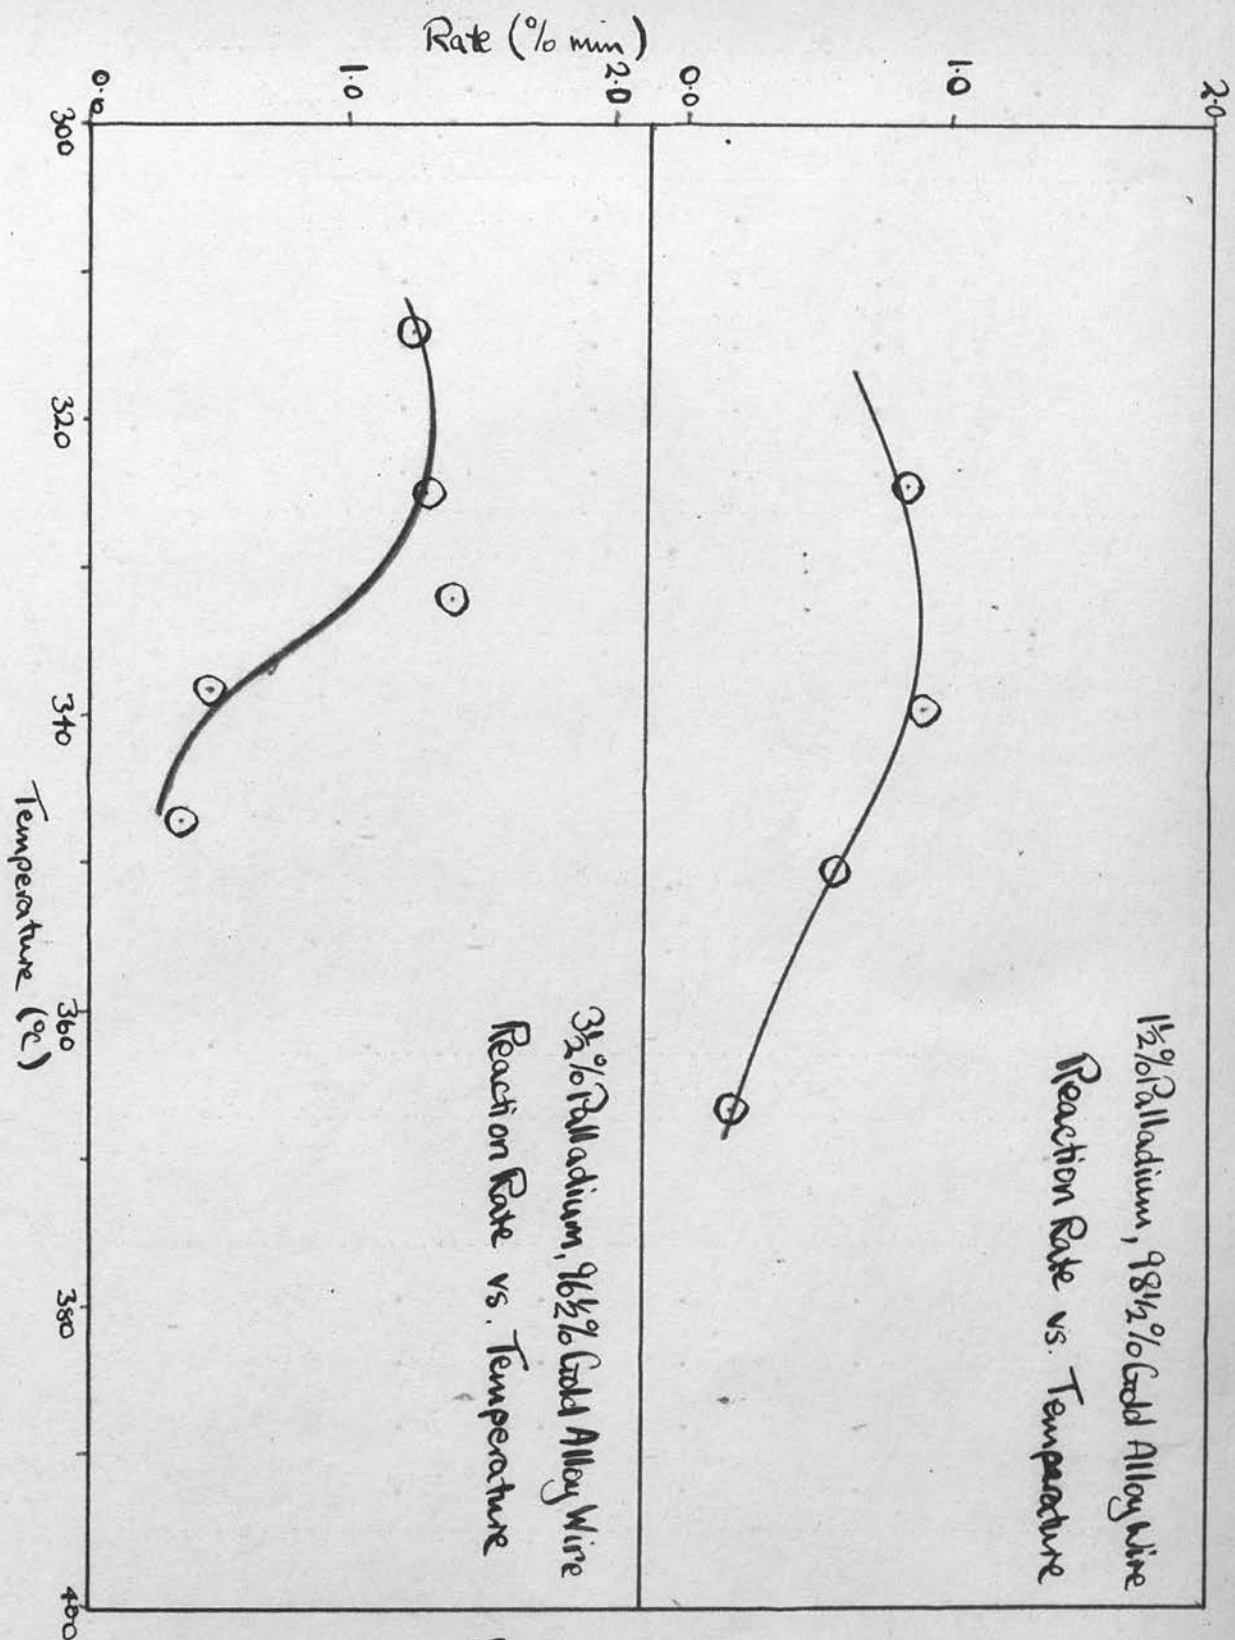 2.0
1.0
0.0
1½% Palladium, 98½% Gold Alloy Wire
Reaction Rate vs. Temperature
Rate (% min)
2.0
1.0
0.0
3½% Palladium, 96½% Gold Alloy Wire
Reaction Rate vs. Temperature
300
320
340
360
380
400
Temperature (°C)